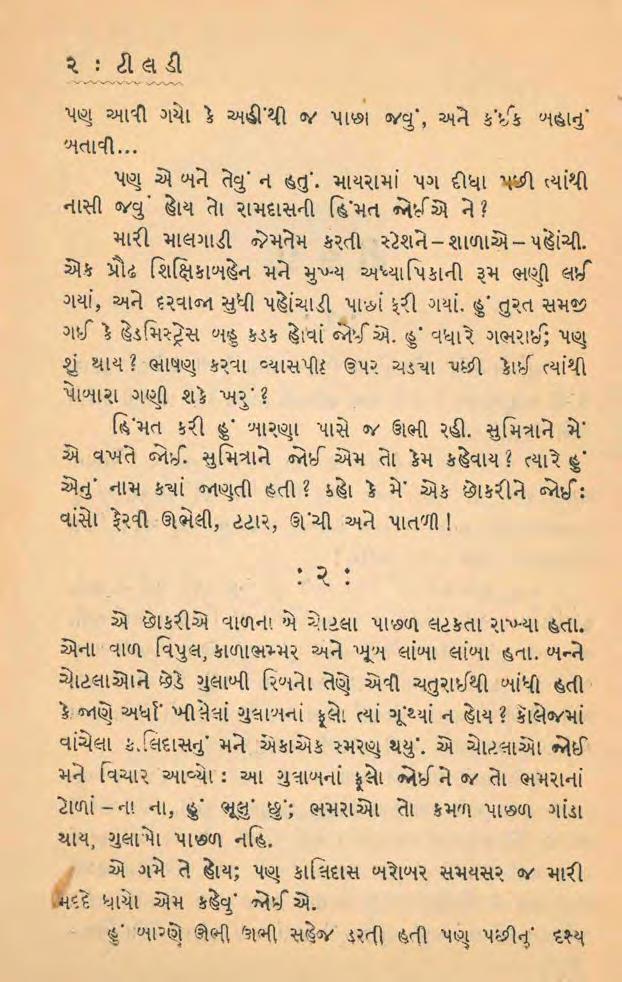 ૨ : ટીલડી
પણ આવી ગયો કે અહીંથી જ પાછા જવું, અને કંઈક બહાનું
બતાવી...
પણ એ બને તેવું ન હતું. માયરામાં પગ દીધા પછી ત્યાંથી
નાસી જવું હોય તો રામદાસની હિંમત જોઈએ ને ?
મારી માલગાડી જેમતેમ કરતી સ્ટેશને–શાળાએ–પહોંચી.
એક પ્રૌઢ શિક્ષિકાબહેન મને મુખ્ય અધ્યાપિકાની રૂમ ભણી લઈ
ગયાં, અને દરવાજા સુધી પહોંચાડી પાછાં ફરી ગયાં. હું તુરત સમજી
ગઈ કે હેડમિસ્ટ્રેસ બહુ કડક હોવાં જોઈએ. હું વધારે ગભરાઈ; પણ
શું થાય ? ભાષણ કરવા વ્યાસપીઠ ઉપર ચડચા પછી કોઈ ત્યાંથી
પોબારા ગણી શકે ખરું ?
હિંમત કરી હું બારણા પાસે જ ઊભી રહી. સુમિત્રાને મેં
એ વખતે જોઈ. સુમિત્રાને જોઈ એમ તો કેમ કહેવાય ? ત્યારે હું
એનું નામ કચાં જાણતી હતી ? કહો કે મેં એક છોકરીને જોઈ :
વાંસો ફેરવી ઊભેલી, ટટાર, ઊંચી અને પાતળી !
: ૨ :
એ છોકરીએ વાળના બે ચોટલા પાછળ લટકતા રાખ્યા હતા.
એના વાળ વિપુલ, કાળાભમ્મર અને ખૂબ લાંબા લાંબા હતા. બન્ને
ચોટલાઓને છેડે ગુલાબી રિબનો તેણે એવી ચતુરાઈથી બાંધી હતી
કે જાણે અર્ધાં ખીલેલાં ગુલાબનાં ફૂલો ત્યાં ગૂંથ્યાં ન હોય ? કૉલેજમાં
વાંચેલા કાલિદાસનું મને એકાએક સ્મરણ થયું. એ ચોટલાઓ જોઈ
મને વિચાર આવ્યો : આ ગુલાબનાં ફૂલો જોઈને જ તો ભમરાનાં
ટોળાં – ના ના, હું ભૂલું છું; ભમરાઓ તો કમળ પાછળ ગાંડા
થાય, ગુલાબો પાછળ નહિ.
એ ગમે તે હોય; પણ કાલિદાસ બરોબર સમયસર જ મારી
મદદે ધાયો એમ કહેવું જોઈએ.
હું બારણે ઊભી ઊભી સહેજ ડરતી હતી પણ પછીનું દૃશ્ય